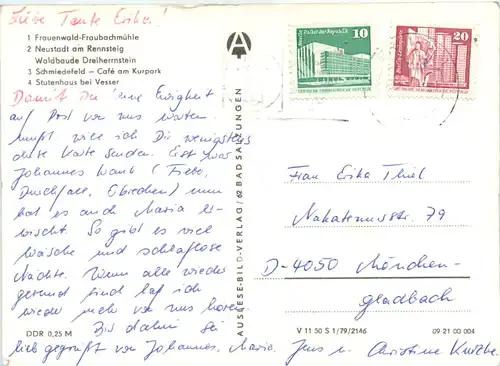 Liebe Tante Erika!
1 Frauenwald-Fraubachmühle
2 Neustadt am Rennsteig
Waldbaude Dreiherrnstein
3 Schmiedefeld – Café am Kurpark
4 Stutenhaus bei Vesser
Damit Du 'ne Ewigkeit
auf Post von uns warten
mußt will ich Dir wenigstens
diese Karte senden. Erst war
Johannes krank (Fieber,
Durchfall, Erbrechen) nun
hat es auch Maria er-
wischt. So gibt es viel
Wäsche und schlaflose
Nächte. Wenn alle wieder
gesund sind laß ich
wieder mehr von uns hören
Bis dahin sei
lieb gegrüßt von Johannes, Maria,
Jens u. Christine
DDR 0,25 M
AUSLESE-BILD-VERLAG / 62 BAD SALZUNGEN
A
10
20
Frau Erika Thiel
Nakatenusstr. 79
D-4050 Mönchen-
gladbach
V 11 50 S 1/79/2146
09 21 00 004